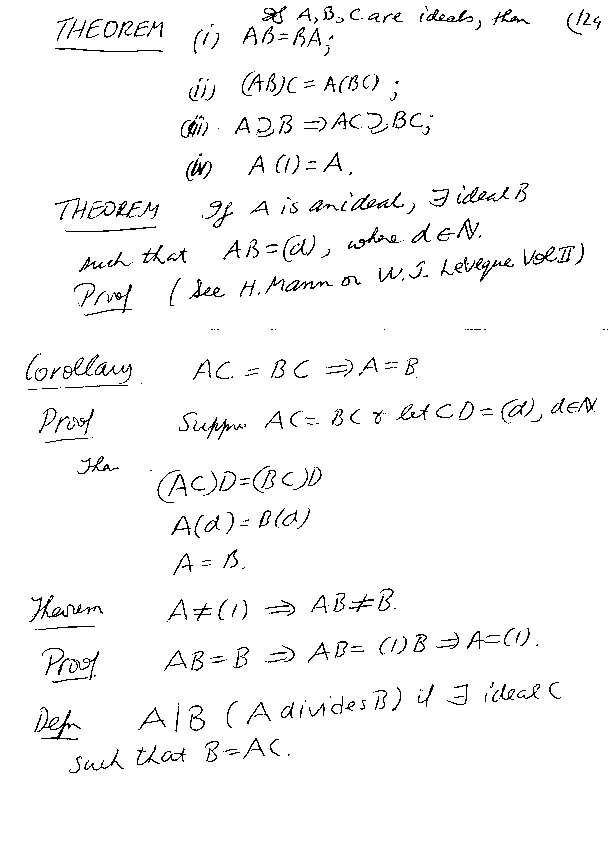 If A, B, C are ideals, then (124
THEOREM (i) AB = BA;
(ii) (AB)C = A(BC);
(iii) A ⊇ B ⇒ AC ⊇ BC;
(iv) A(1) = A.
THEOREM If A is an ideal, ∃ ideal B
such that AB = (d), where d ∈ N.
Proof (See H. Mann or W. J. LeVeque Vol II)
Corollary AC = BC ⇒ A = B
Proof Suppose AC = BC & let CD = (d), d ∈ N
Then
(AC)D = (BC)D
A(d) = B(d)
A = B.
Theorem A ≠ (1) ⇒ AB ≠ B.
Proof AB = B ⇒ AB = (1)B ⇒ A = (1).
Defn A|B (A divides B) if ∃ ideal C
such that B = AC.